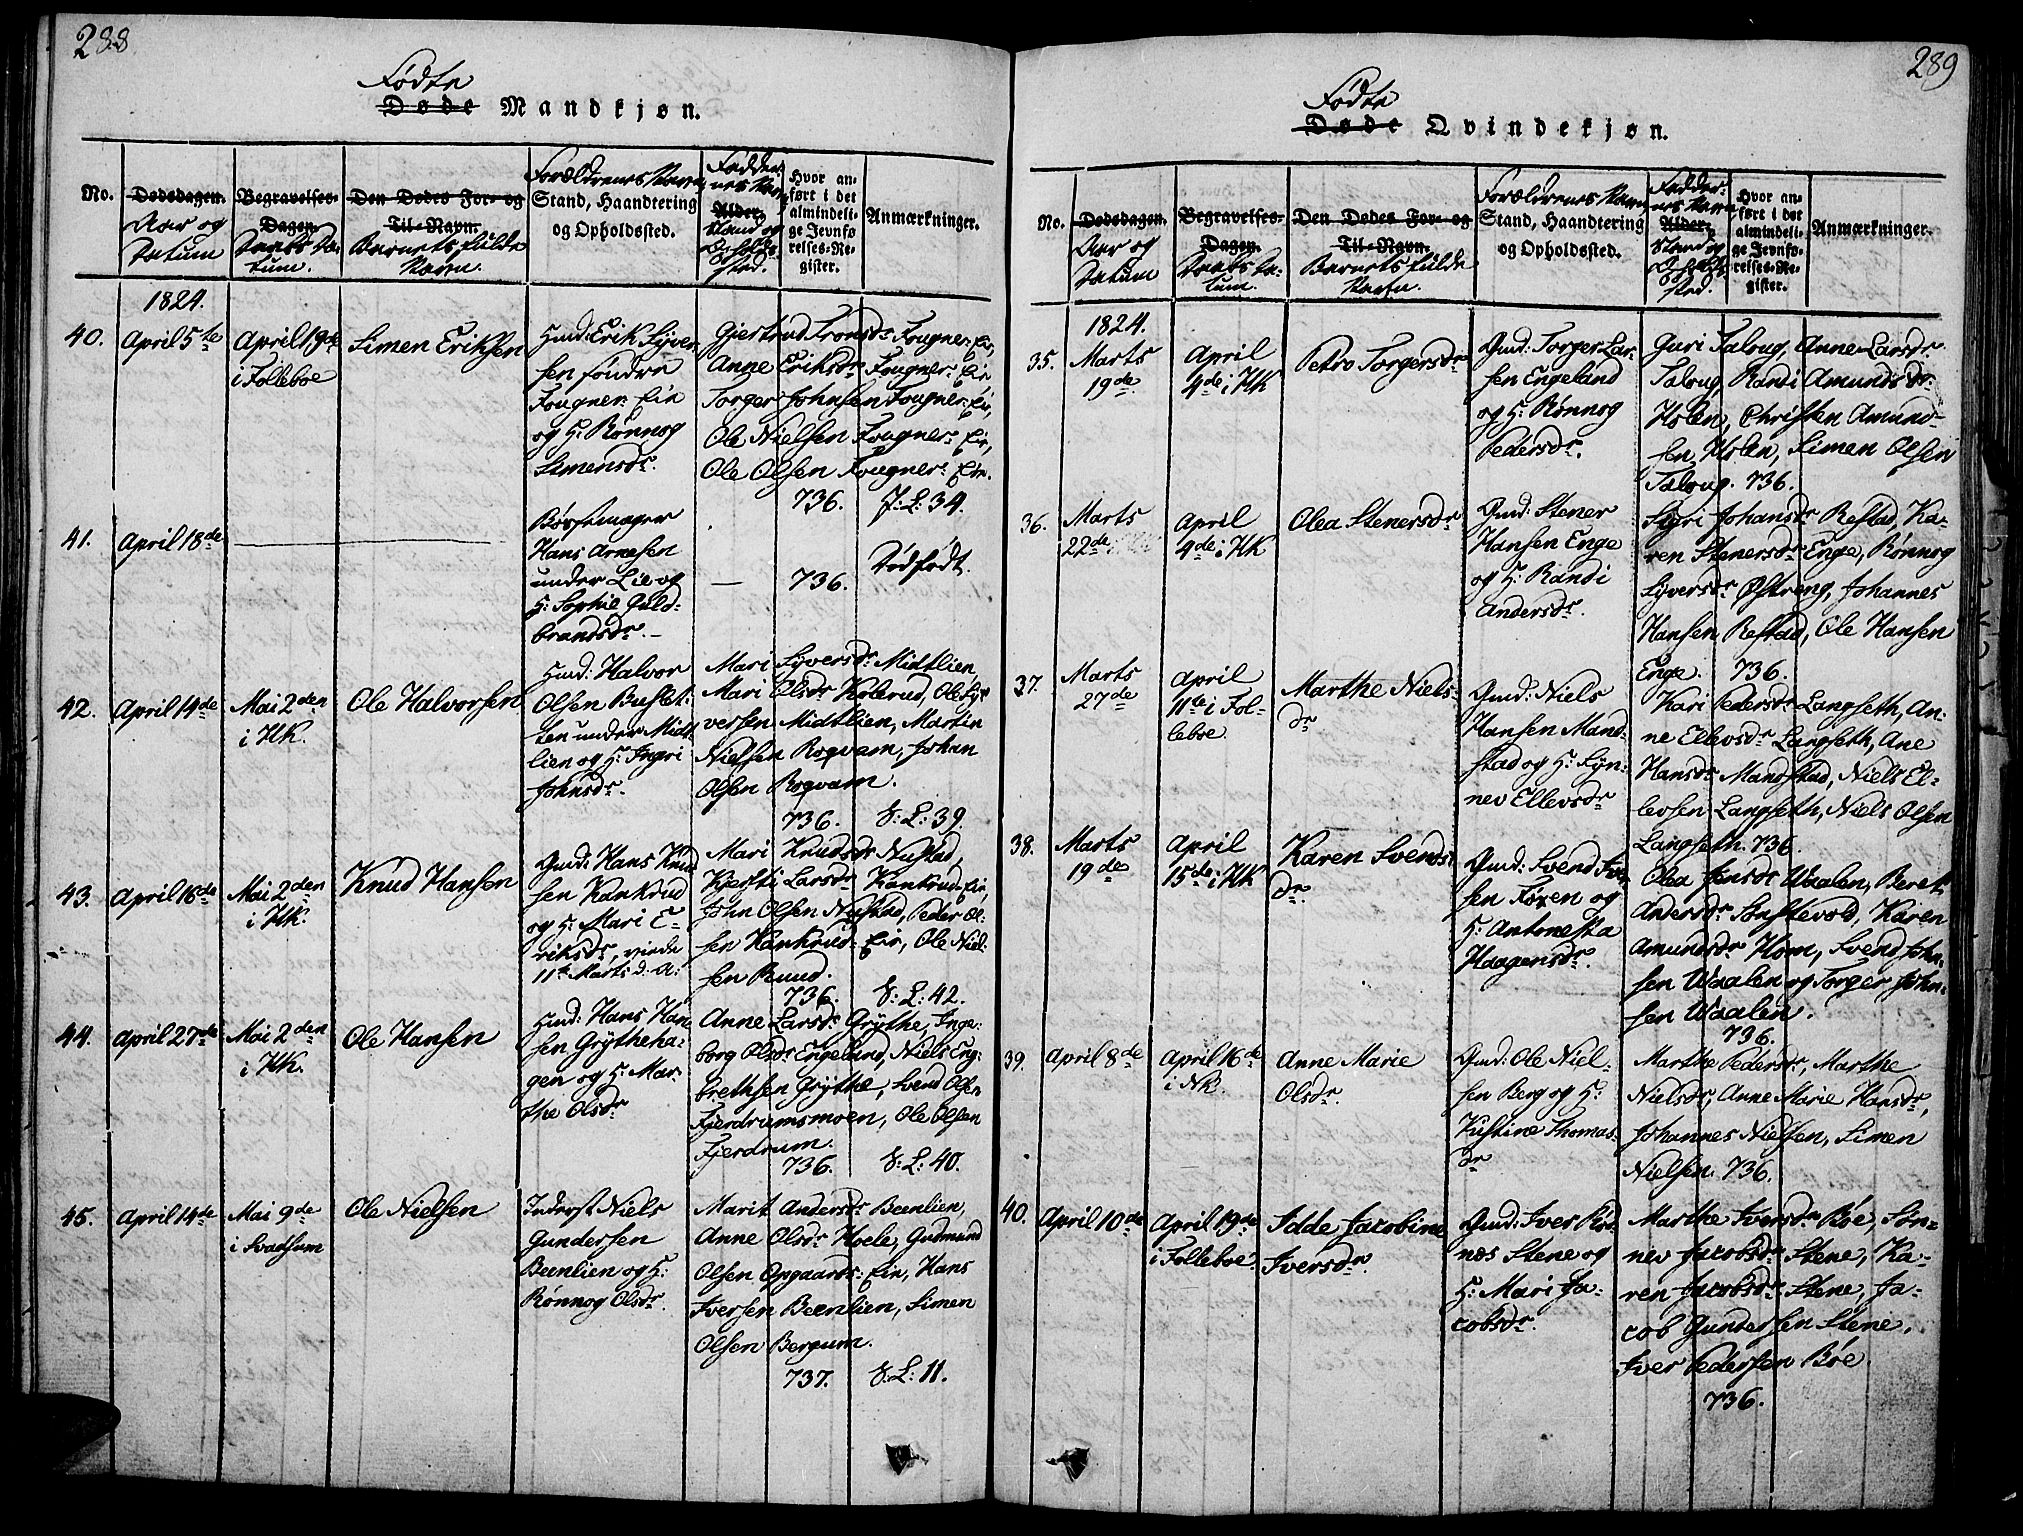 288
Fødte
Døde Mandkjøn.
No.
Dødsdagen.
Aar og
Datum
Begravelses-
Dagen.
Daabs Da-
tum.
Den Dødes For- og
Til-Navn.
Barnets fulde
Navn.
Forældrenes Navn,
Stand, Haandtering
og Opholdssted.
Fadder-
nes Navn,
Alder.
Stand og
Opholds-
sted.
Hvor an-
ført i det
almindeli-
ge Jevnfø-
relses-Re-
gister.
Anmærkninger.
1824.
40.
April 5te
April 19de
i Folleboe
Simen Eriksen
Hmd: Erik Syver-
sen søndre
Fougner: Eie
og H: Rønnog
Simensdr.
Gjertrud Tronsdr Fougner: Eie,
Anne Eriksdr Fougner: Eie
Torger Johnsen Fougner: Eie,
Ole Nielsen Fougner: Eie,
Ole Olsen Fougner: Eie.
736.
F: L: 34.
41.
April 18de
Børsemager
Hans Arnesen
under Lie og
H: Sophie Guld-
brandsdr. –
–
736.
Dødfødt.
42.
April 14de
Mai 2den
i HK.
Ole Halvorsen
Hmd: Halvor
Olsen Buslet-
ten under Midt-
lien og H: Ingri
Johnsdr.
Mari Syversdr Midtlien,
Mari Olsdr Kolerud, Ole Sy-
versen Midtlien, Martin
Nielsen Rogvam, Johan
Olsen Rogvam.
736.
F: L: 39.
43.
April 16de
Mai 2den
i HK.
Knud Hansen
Gmd: Hans Knud-
sen Kankrud
og H: Mari E-
riksdr, viede
11te Marts d: A:
Mari Knudsdr Nustad,
Kjersti Larsdr Kankrud: Eie,
John Olsen Nustad, Peder Ol-
sen Kankrud: Eie, Ole Niel-
sen Ruud.
736.
F: L: 42.
44.
April 27de
Mai 2den
i HK.
Ole Hansen
Hmd: Hans Han-
sen Grytheha-
gen og H: Mar-
the Olsdr
Anne Larsdr Grythe, Inge-
borg Olsdr Engeland, Niels Eng-
brethsen Grythe, Svend Olsen
Fjerdrumsmoen, Ole Olsen
Fjerdrum.
736.
F: L: 40.
45.
April 14de
Mai 9de
i Svadsum
Ole Nielsen
Inderst Niels
Gundersen
Beenlien og H:
Rønnog Olsdr.
Marit Andersdr Beenlien,
Anne Olsdr Hoele, Gudmund
Olsen Opgaards: Eie, Hans
Iversen Beenlien, Simen
Olsen Bergum.
737.
F: L: 11.
289
Fødte
Døde Qvindekjøn.
No.
Dødsdagen.
Aar og
Datum
Begravelses-
Dagen.
Daabs Da-
tum.
Den Dødes For- og
Til-Navn.
Barnets fulde
Navn.
Forældrenes Navn,
Stand, Haandtering
og Opholdssted.
Fadder-
nes Navn,
Alder.
Stand og
Opholds-
sted.
Hvor an-
ført i det
almindeli-
ge Jevnfø-
relses-Re-
gister.
Anmærkninger.
1824.
35.
Marts
19de
April
4de i HK
Petro Torgersdr
Gmd: Torger Lar-
sen Engeland
og H: Rønnog
Pedersdr.
Guri Saloug, Anne Larsdr
Saloug, Randi Amundsdr
Holen, Christen Amund-
sen Holen, Simen Olsen
Saloug. 736.
36.
Marts
22de
April
4de i HK
Olea Stenersdr
Gmd: Stener
Hansen Enge
og H: Randi
Andersdr.
Sigri Johansdr Restad, Ka-
ren Stenersdr Enge, Rønnog
Syversdr Østreng, Johannes
Hansen Restad, Ole Hansen
Enge. 736.
37.
Marts
27de
April
11te i Fol-
leboe
Marthe Niels-
dr
Gmd: Niels
Hansen Mand-
stad og H: Syn-
nev Ellevsdr
Kari Pedersdr Langseth, An-
ne Ellevsdr Langseth, Ane
Hansdr Mandstad, Niels El-
levsen Langseth, Niels Olsen
Langseth. 736.
38.
Marts
19de
April
15de i HK
Karen Svends-
dr.
Gmd: Svend Iver-
sen Foxen og
H: Antonetta
Haagensdr.
Olea Jensdr Waalen, Beret
Andersdr Sønstevold, Karen
Amundsdr Horn, Svend John-
sen Waalen og Torger John-
sen Waalen.
736.
39.
April 8de
April 16de
i NK.
Anne Marie
Olsdr.
Gmd: Ole Niel-
sen Berg og H:
Kustine Thomas-
dr
Marthe Pedersdr, Marthe
Nielsdr, Anne Marie Hansdr,
Johannes Nielsen, Simen
Nielsen. 736.
40.
April 10de
April 19de
i Folleboe
Idde Jacobine
Iversdr.
Gmd: Iver Rod-
næs Stene og
H: Mari Ja-
cobsdr.
Marthe Iversdr Bøe, Søn-
nev Jacobsdr Stene, Ka-
ren Jacobsdr Stene, Ja-
cob Gundersen Stene,
Iver Pedersen Bøe.
736.